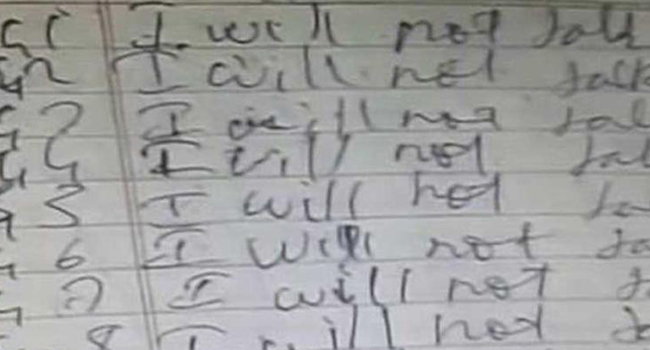 41 I will not talk
42 I will not talk
43 I will not tal
44 I will not tal
45 I will not ta
46 I will not ta
47 I will not t
48 I will not t